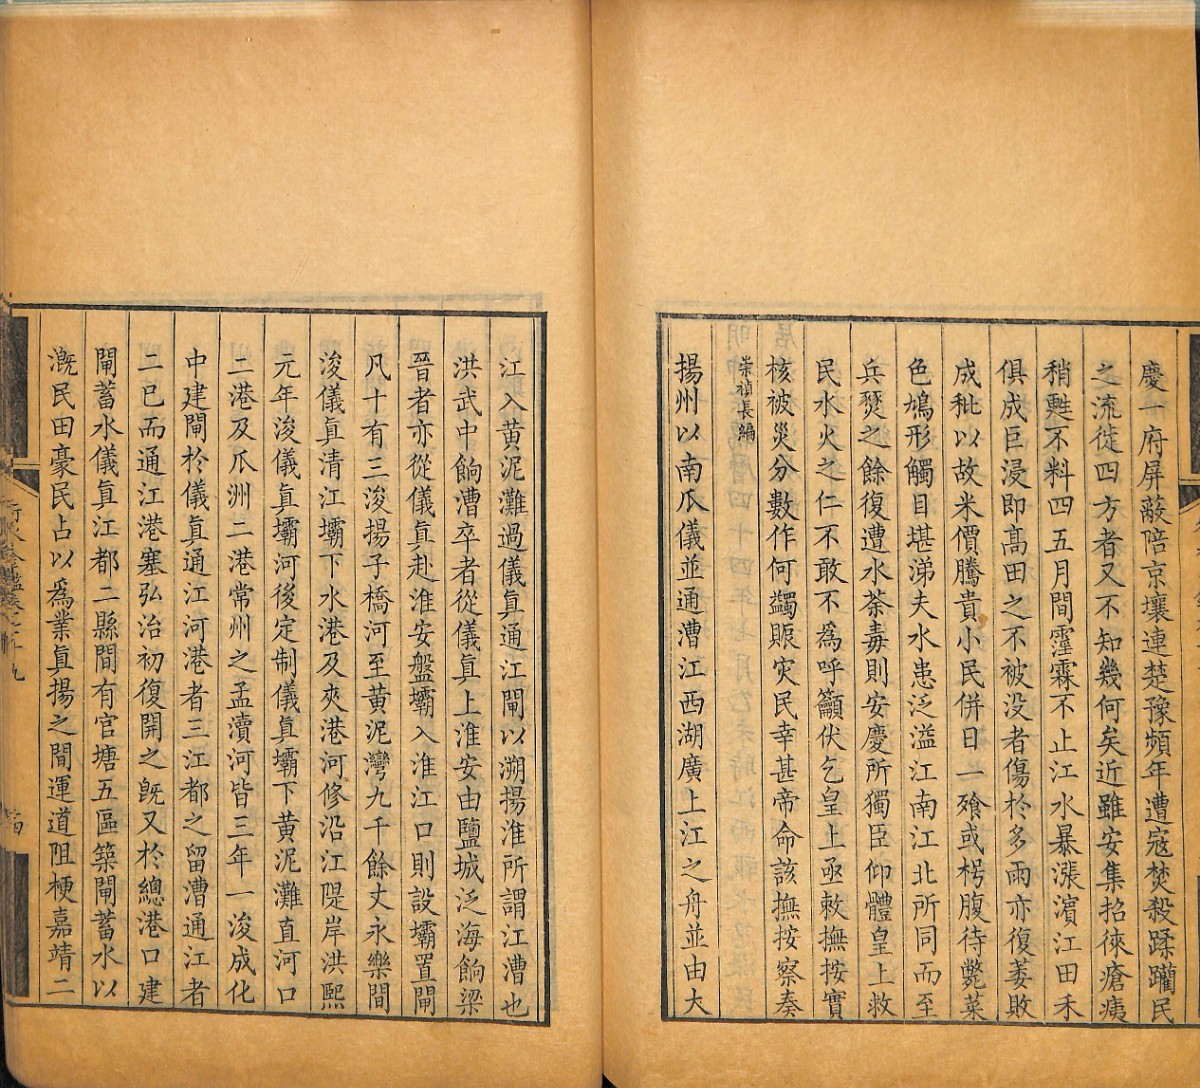 慶一府屏蔽陪京壤連楚豫頻年遭寇焚殺蹂躪民
之流徙四方者又不知幾何矣近雖安集招徠瘡痍
稍甦不料四五月間霪霖不止江水暴漲濱江田禾
俱成巨浸即高田之不被没者傷於多雨亦復萎敗
成秕以故米價騰貴小民併日一飱或枵腹待斃菜
色鳩形觸目堪涕夫水患泛溢江南江北所同而至
兵燹之餘復遭水荼毒則安慶所獨臣仰體皇上救
民水火之仁不敢不為呼籲伏乞皇上亟敕撫按實
核被災分數作何蠲賑灾民幸甚帝命該撫按察奏
崇禎長編
揚州以南瓜儀並通漕江西湖廣上江之舟並由大
江入黄泥灘過儀真通江閘以溯揚淮所謂江漕也
洪武中餉漕卒者從儀真上淮安由鹽城泛海餉梁
晉者亦從儀真赴淮安盤壩入淮江口則設壩置閘
凡十有三浚揚子橋河至黄泥灣九千餘丈永樂間
浚儀真清江壩下水港及夾港河修沿江隄岸洪熙
元年浚儀真壩河後定制儀真壩下黄泥灘直河口
二港及瓜洲二港常州之孟瀆河皆三年一浚成化
中建閘於儀真通江河港者三江都之留漕通江者
二已而通江港塞弘治初復開之既又於總港口建
閘蓄水儀真江都二縣間有官塘五區築閘蓄水以
漑民田豪民占以為業真揚之間運道阻梗嘉靖二